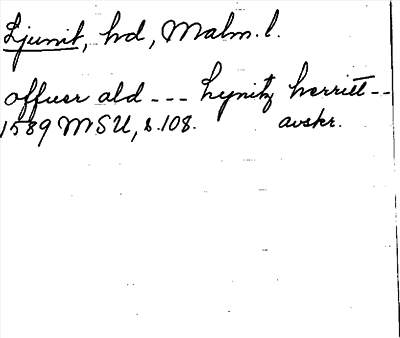 Ljunit, hd, Malm. l.
offuer ald --- Lynitz herritt --
1589 MSU, s. 108. avskr.